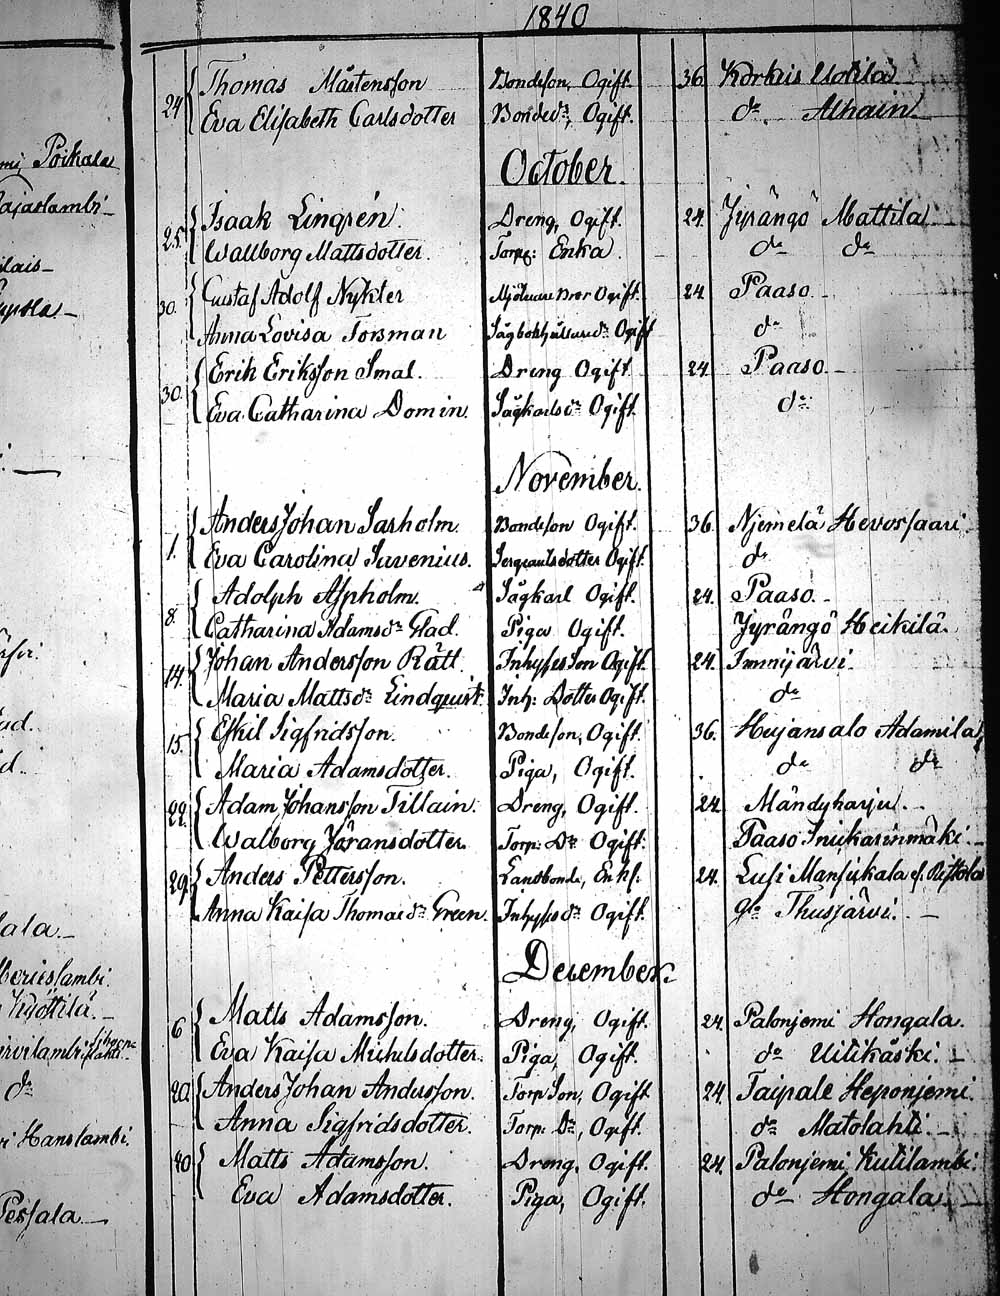 1840
24 Thomas Mårtensson Bondeson, Ogift. 36. Korkeis Uotila
Eva Elisabeth Carlsdotter Bonded:r, Ogift. d:o Alhain.
October.
25. Isaak Lingrén. Dreng, Ogift. 24. Jyrängö Mattila
Wallborg Mattsdotter. Torp: Enka. d:o d:o
30. Gustaf Adolf Nykter Mjölnare Bror Ogift. 24 Paaso
Anna Lovisa Forsman Ogift d:o
30. Erik Eriksson Smal. Dreng Ogift 24. Paaso
Eva Catharina Domin. Sågkarlsd:r Ogift. d:o
November.
1. Anders Johan Sarholm. Bondeson Ogift. 36. Njemelä Hevossaari.
Eva Carolina Juvenius. Sergeantsdotter Ogift. d:o
8. Adolph Aspholm. Sågkarl Ogift. 24. Paaso.
Catharina Adamsd:r Glad. Piga Ogift. Jyrängö Heikilä.
14. Johan Andersson Rätt. Inhyses Son Ogift. 24. Imnijärvi.
Maria Mattsd:r Lindquist. Inh: Dotter Ogift. d:o
15. Eskil Sigfridsson. Bondeson, Ogift. 36. Hujansalo Adamila
Maria Adamsdotter. Piga, Ogift. d:o d:o
22. Adam Johansson Tillain. Dreng, Ogift. 24 Mändyharju.
Walborg Jöransdotter. Torp: D:r Ogift. Paaso
29. Anders Pettersson. Landbonde, Enkl. 24. Lusi
Anna Kaisa Thomasd:r Green. Inhysesd:r Ogift. Thusjärvi.
December.
6 Matts Adamsson. Dreng, Ogift. 24. Palonjemi Hongala.
Eva Kaisa Michelsdotter. Piga, Ogift. d:o Uitikäski.
20. Anders Johan Andersson. Torp Son, Ogift. 24 Taipale Heponjemi.
Anna Sigfridsdotter. Torp: D:r, Ogift. d:o Matolahti.
Matts Adamsson. Dreng, Ogift. 24. Palonjemi Kutilambi.
Eva Adamsdotter. Piga, Ogift. d:o Hongala